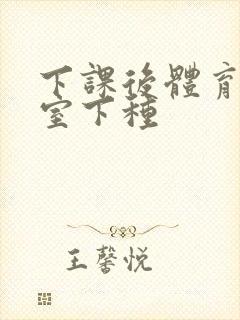 下課後體育
室下種
王馨悦